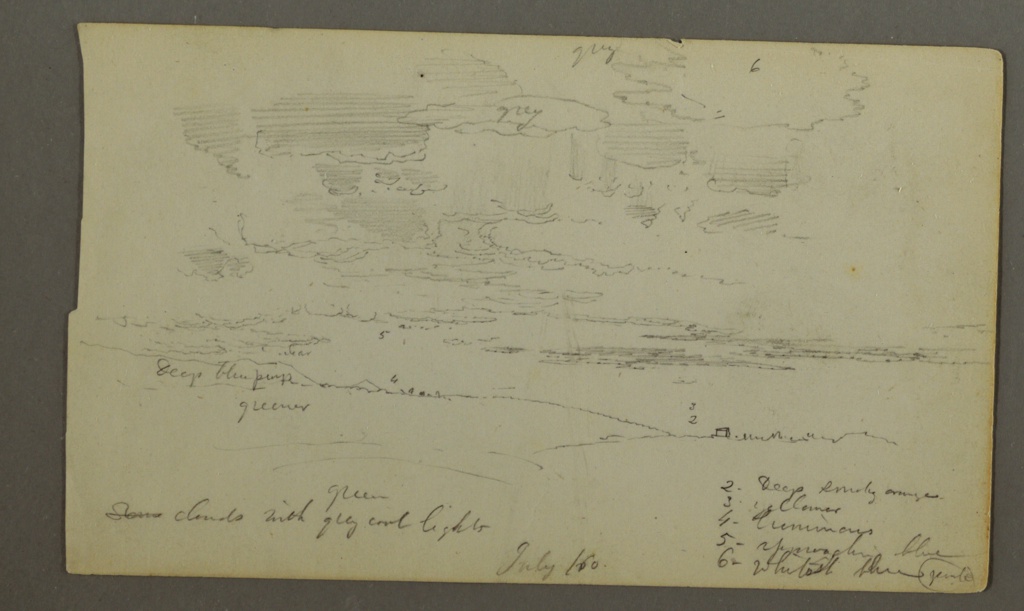 grey
6
grey
5
Deep blue purp
4
greener
3
2
green
clouds with grey cool lights
2- Deep smoky orange
3 yellower
4- Luminous
5- approaching blue
6- whitish blue
July /60.